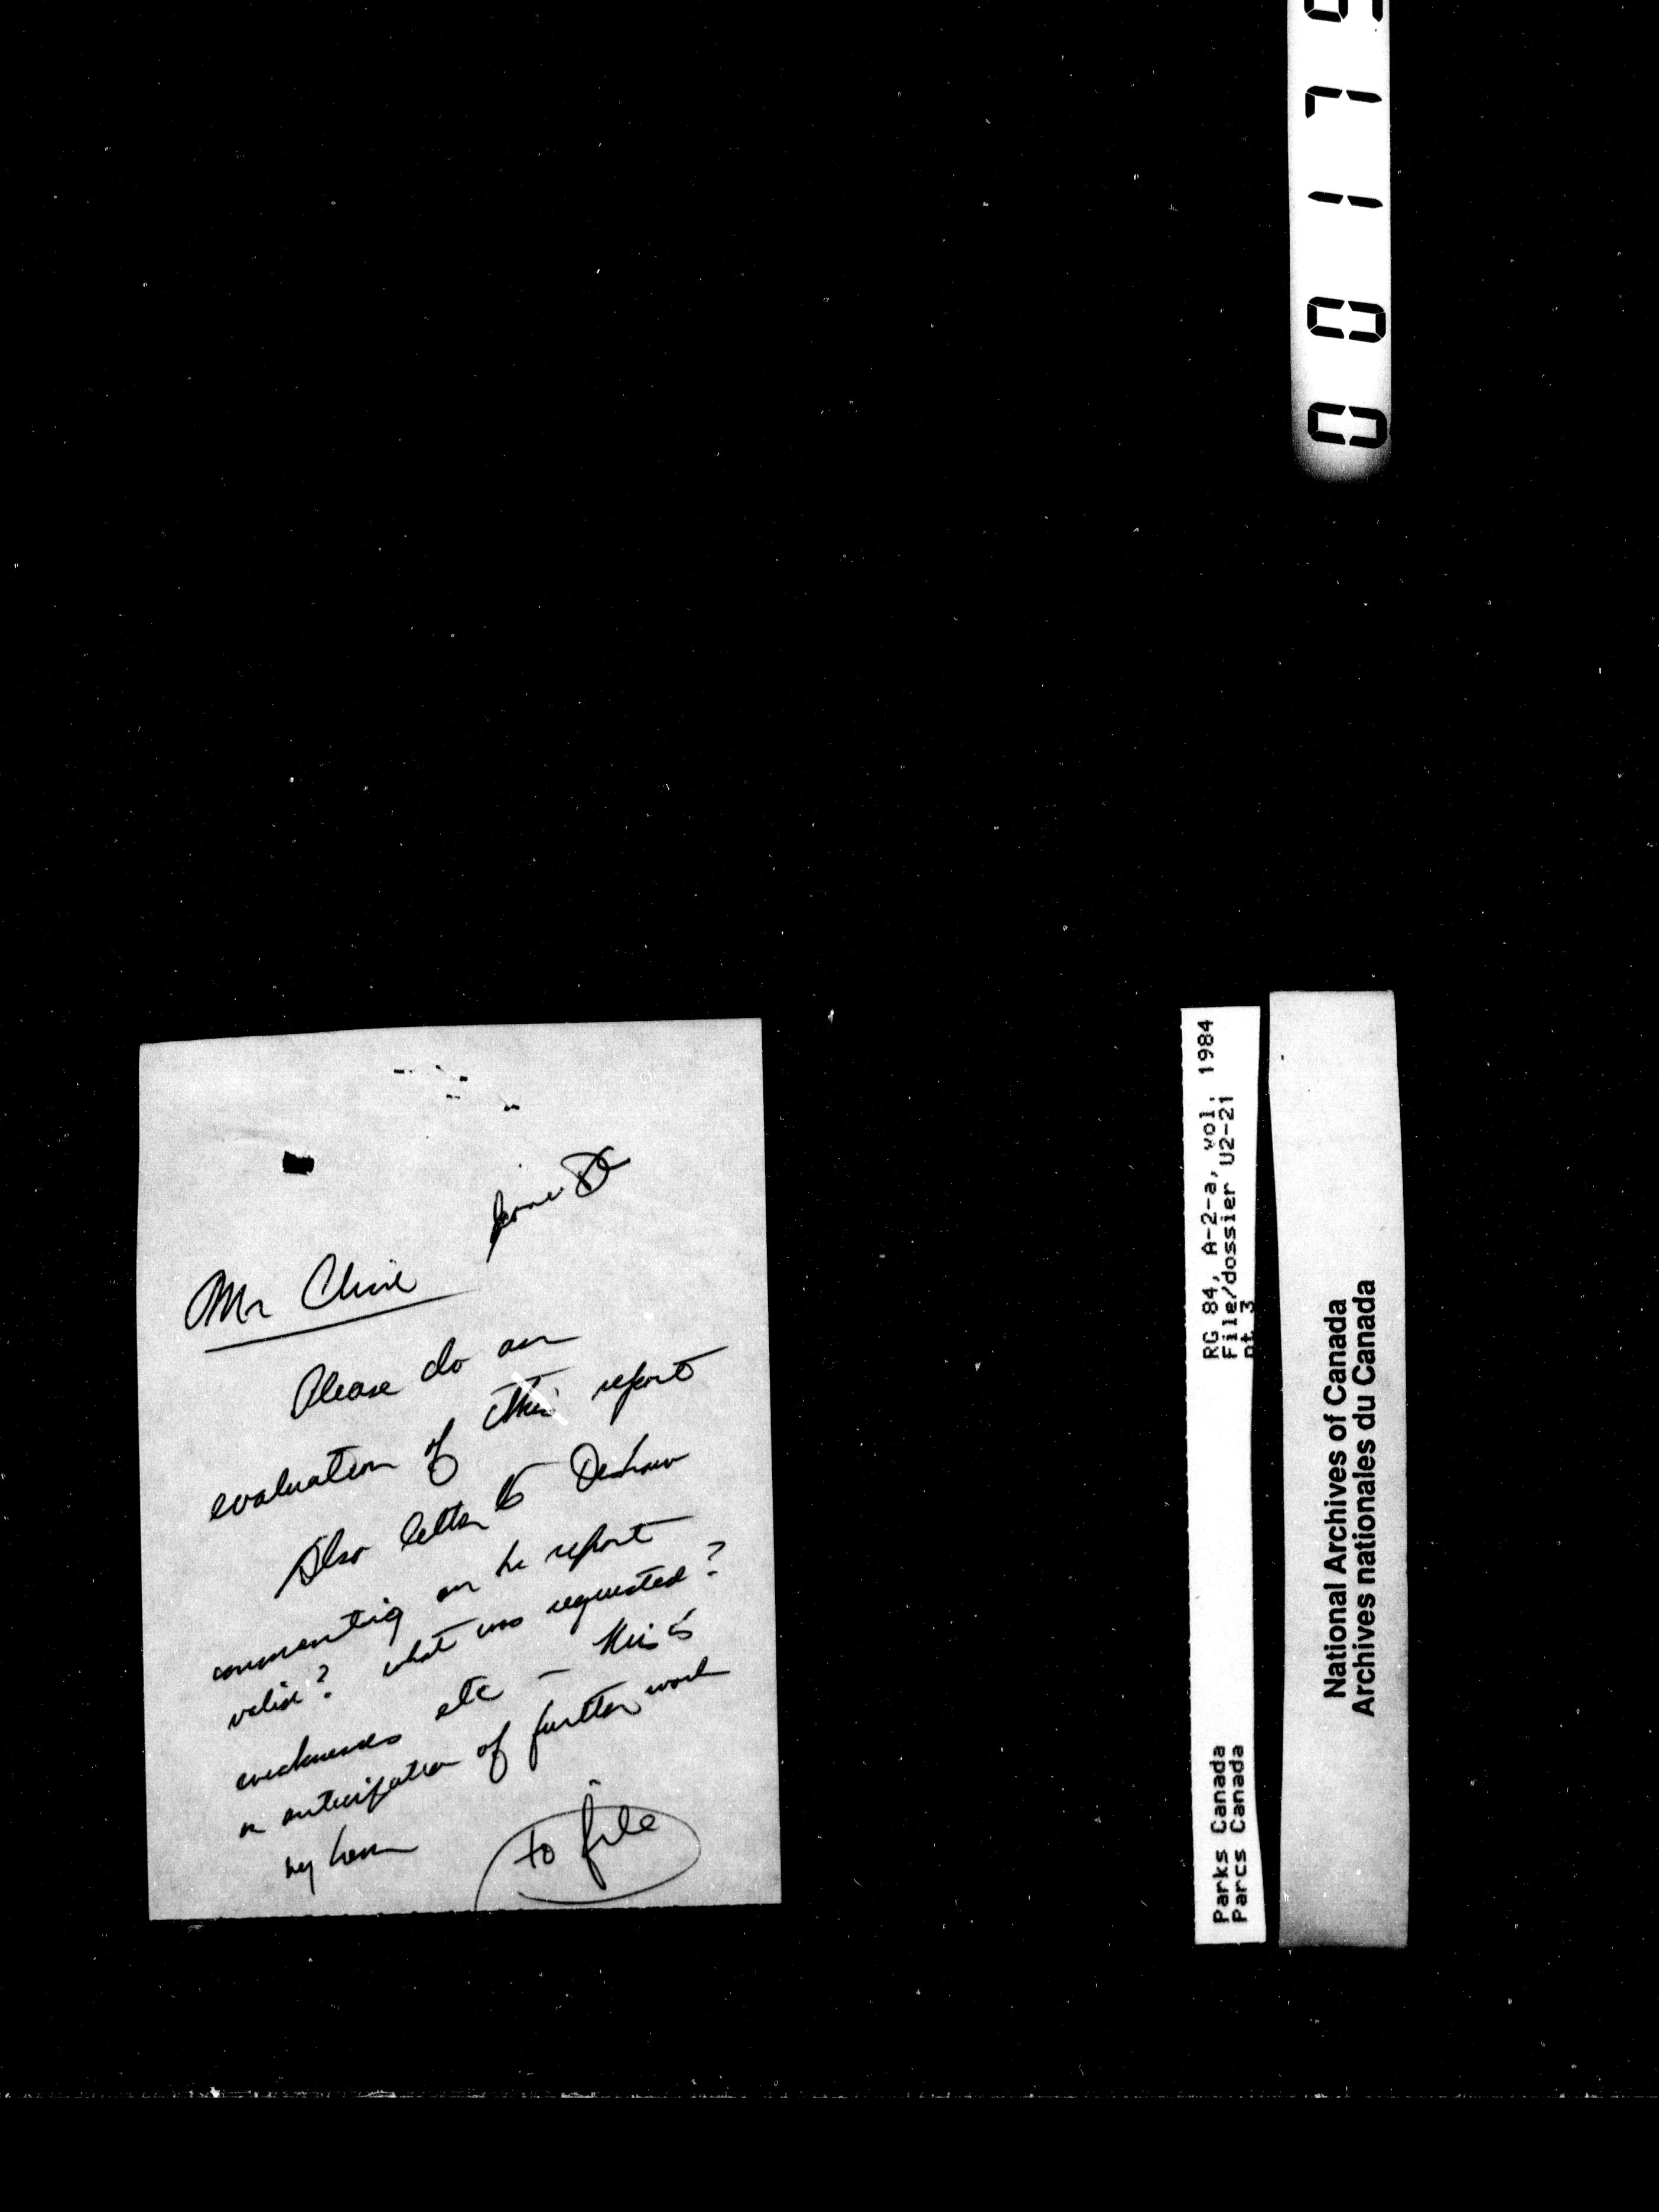 00179
Mr
Please do an
evaluation of this report
Also letter to
commenting on he report
valid? what was requested?
weaknesses etc – this is
in anticipation of further work
by
to file
RG 84, A-2-a, vol. 1984
File/dossier U2-21
pt 3
Parks Canada
Parcs Canada
National Archives of Canada
Archives nationales du Canada